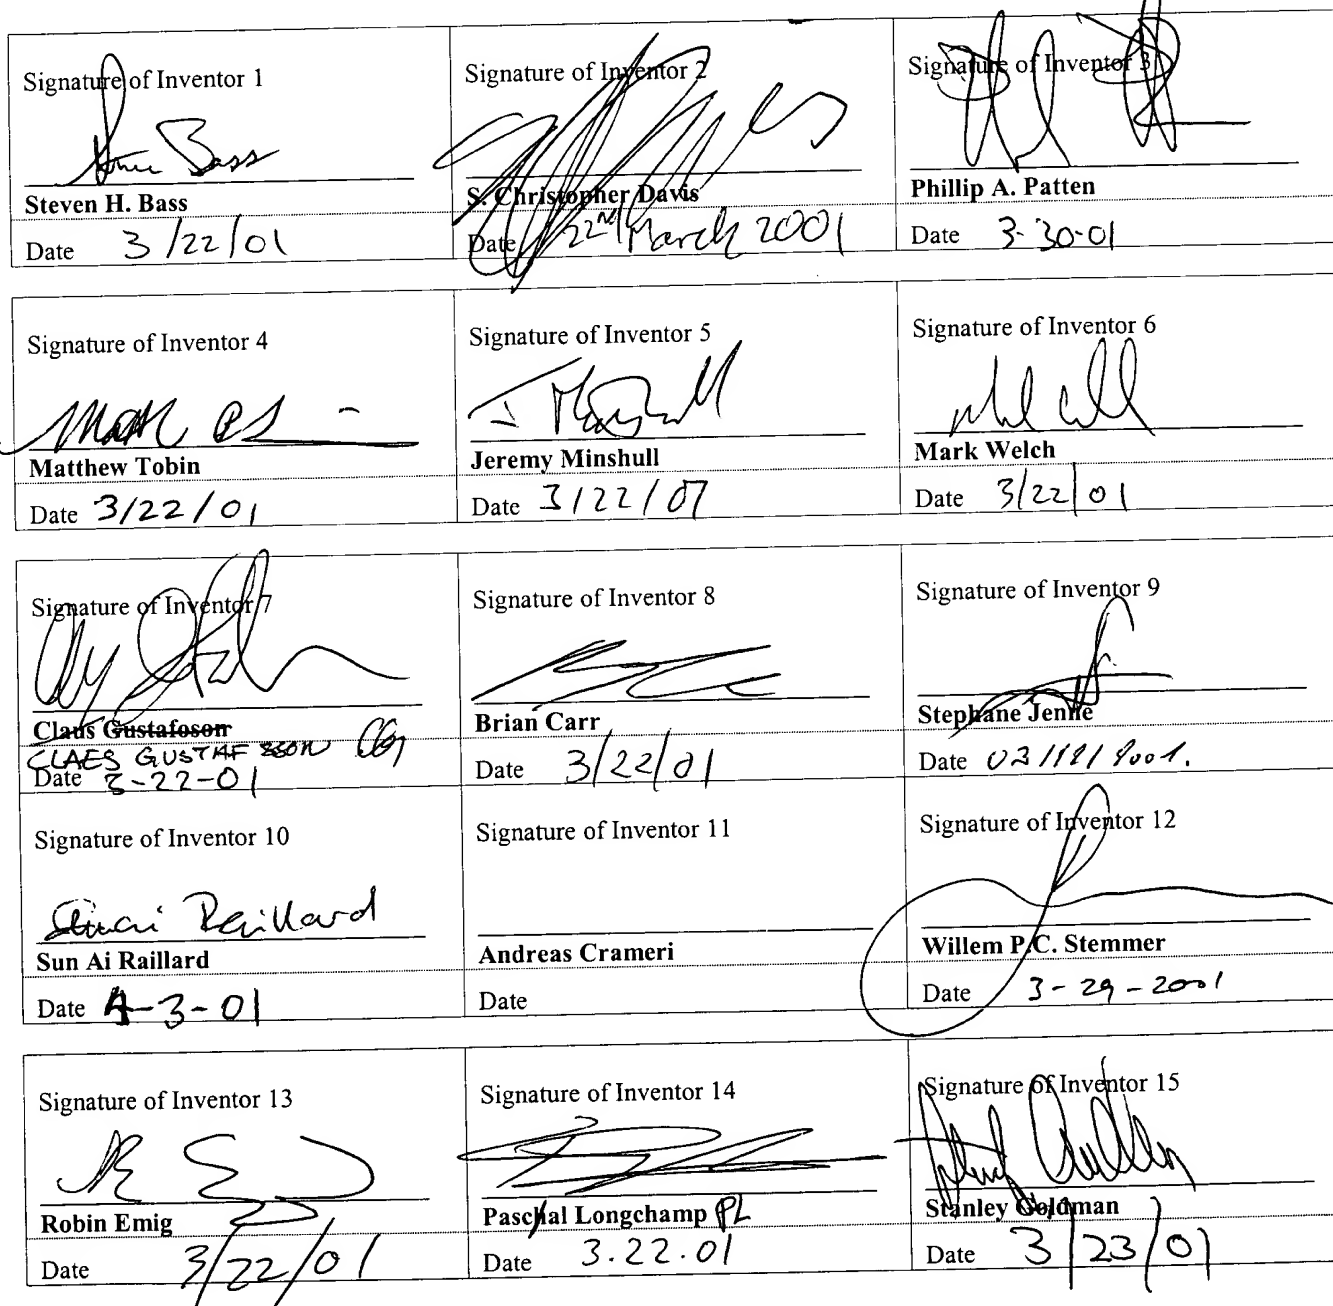 Signature of Inventor 1
Signature of Inventor 2
Signature of Inventor 3
Bass
Steven H. Bass
S. Christopher Davis
Phillip A. Patten
Date 3/22/01
Date 22nd March 2001
Date 3-30-01
Signature of Inventor 4
Signature of Inventor 5
Signature of Inventor 6
Matthew Tobin
Jeremy Minshull
Mark Welch
Date 3/22/01
Date 3/22/01
Date 3/22/01
Signature of Inventor 7
Signature of Inventor 8
Signature of Inventor 9
Claus Gustafoson
CLAES GUSTAFSSON CG
Brian Carr
Stephane Jenne
Date 3-22-01
Date 3/22/01
Date
Signature of Inventor 10
Signature of Inventor 11
Signature of Inventor 12
Raillard
Sun Ai Raillard
Andreas Crameri
Willem P.C. Stemmer
Date 4-3-01
Date
Date 3-29-2001
Signature of Inventor 13
Signature of Inventor 14
Signature of Inventor 15
Robin Emig
Paschal Longchamp PL
Stanley Goldman
Date 3/22/01
Date 3.22.01
Date 3/23/01